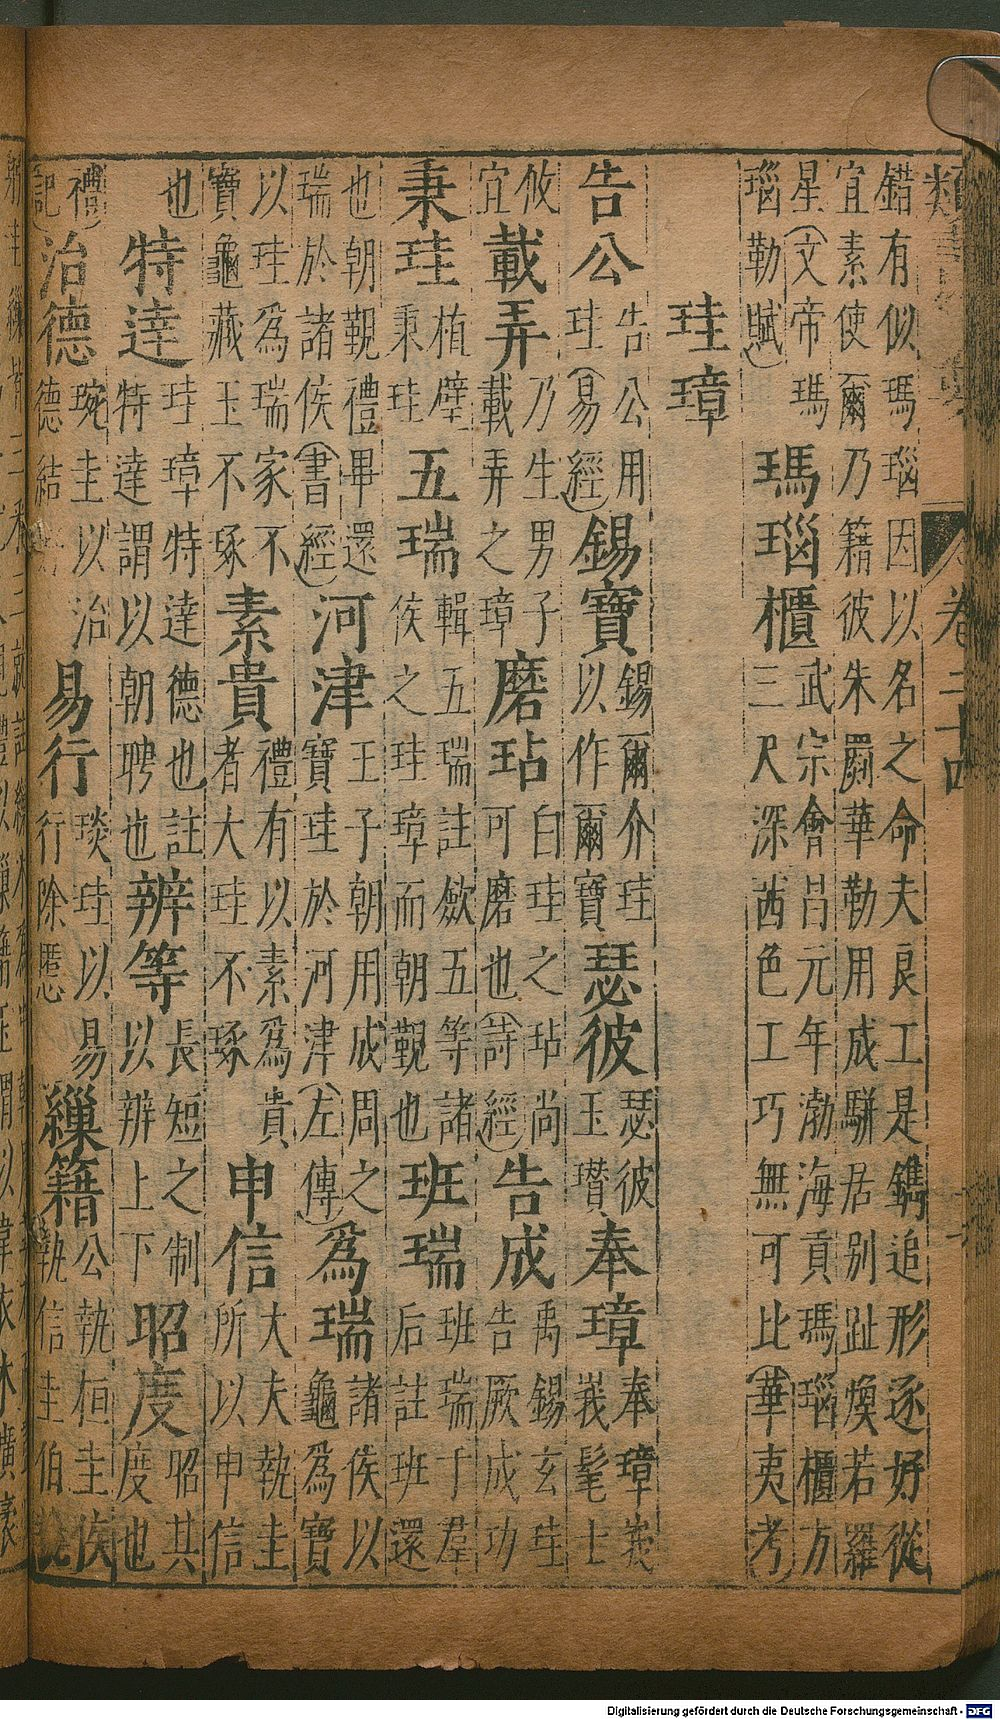 卷二十四
錯有似瑪瑙因以名之命夫良工是鐫追形逐好從
宜素使爾乃籍彼朱罽華勒用成駢居别趾煥若羅
星(文帝瑪
瑙勒賦)
瑪瑙櫃
武宗會昌元年渤海貢瑪瑙櫃方
三尺深茜色工巧無可比(華夷考)
珪璋
告公
告公用
珪(易經)
錫寶
錫爾介珪
以作爾寶
瑟彼
瑟彼
玉瓚
奉璋
奉璋峩
峩髦士
攸
宜
載弄
乃生男子
載弄之璋
磨玷
白珪之玷尚
可磨也(詩經)
告成
禹錫玄珪
告厥成功
秉珪
植壁
秉珪
五瑞
輯五瑞註斂五等諸
侯之珪璋而朝覲也
班瑞
班瑞于羣
后註班還
也朝覲禮畢還
瑞於諸侯(書經)
河津
王子朝用成周之
寶珪於河津(左傳)
爲瑞
諸侯以
龜爲寶
以珪爲瑞家不
寶龜藏玉不琢
素貴
禮有以素爲貴
者大珪不琢
申信
大夫執圭
所以申信
也
特達
珪璋特達德也註
特達謂以朝聘也
辨等
長短之制
以辨上下
昭度
昭其
度也
禮
記)
治德
琬圭以治
德結
易行
琰珪以易
行除慝
繅籍
公執桓圭侯
執信圭伯
Digitalisierung gefördert durch die Deutsche Forschungsgemeinschaft - DFG